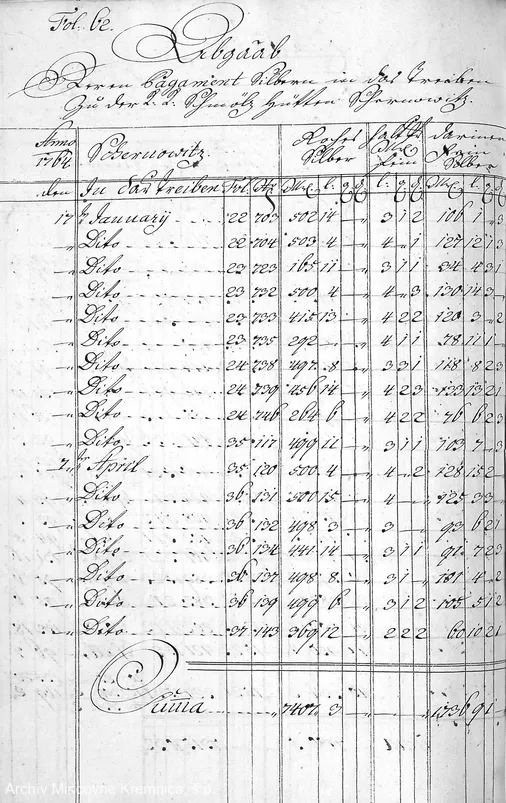 Fol. 62.
Abgaab
Deren Pagament Silbern in das Treiben
Zu der K. K. Schmöltz Hütten Schernowitz.
Anno 1764 Schernowitz. Rohes Silber Halt Fein Darinen Fein Silber
den In das Treiben Fol. M. L. q. L. q. M. L. q.
17 January 22 703 502 14 3 1 2 106 1 3
" Dito 22 704 503 4 4 1 127 12 13
" Dito 23 723 165 11 3 1 1 34 4 31
" Dito 23 732 500 4 4 3 130 14 3
" Dito 23 733 415 13 4 2 2 120 3 2
" Dito 23 735 292 4 1 1 78 11 1
" Dito 24 738 497 8 3 3 1 118 8 23
" Dito 24 739 456 14 4 2 3 133 13 21
" Dito 24 746 264 6 4 2 2 76 6 23
" Dito 35 117 499 11 3 1 1 103 7 3
7 April 35 120 500 4 4 2 128 15 2
" Dito 36 131 500 15 4 125 3 3
" Dito 36 132 498 3 3 93 6 21
" Dito 36 134 441 14 3 1 1 91 7 23
" Dito 36 137 498 8 3 1 101 4 2
" Dito 36 139 499 6 3 1 2 105 5 12
" Dito 37 143 369 12 2 2 2 60 10 21
Suma 7407 3 1736 9 1
Archiv Mincovne Kremnica, š.p.